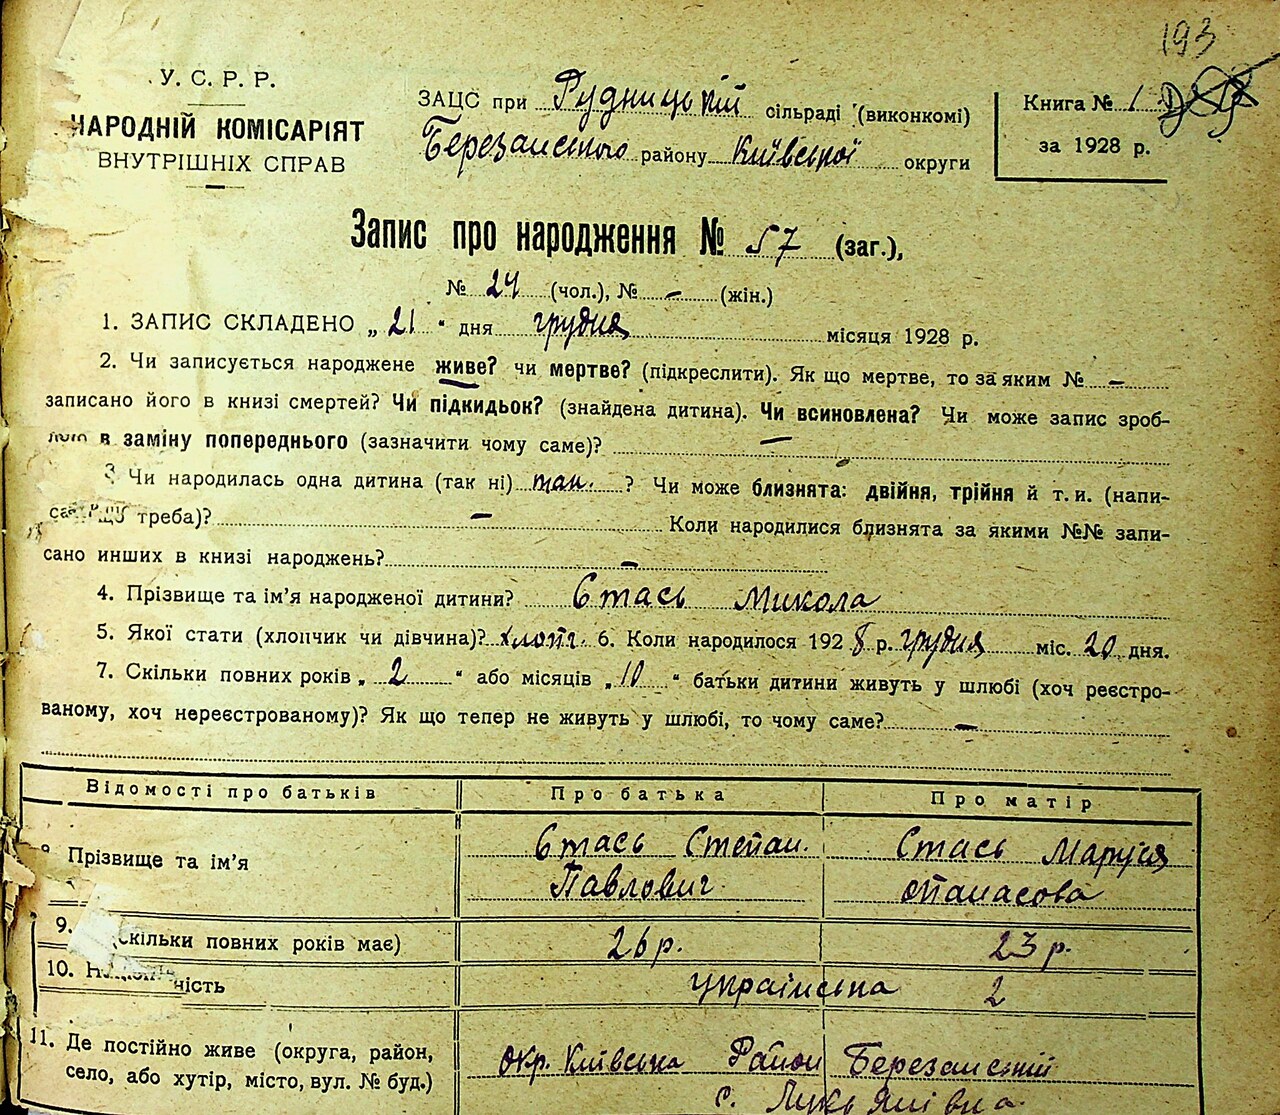 193
У. С. Р. Р.
НАРОДНІЙ КОМІСАРІЯТ
ВНУТРІШНІХ СПРАВ
ЗАЦС при Рудницькій сільраді (виконкомі)
Березанського району Київської округи
Книга № 1
за 1928 р.
Запис про народження № 57 (заг.),
№ 24 (чол.), № – (жін.)
1. ЗАПИС СКЛАДЕНО „ 21 “ дня грудня місяця 1928 р.
2. Чи записується народжене живе? чи мертве? (підкреслити). Як що мертве, то за яким № –
записано його в книзі смертей? Чи підкидьок? (знайдена дитина). Чи всиновлена? Чи може запис зроб-
лено в заміну попереднього (зазначити чому саме)? –
3 Чи народилась одна дитина (так ні) так. ? Чи може близнята: двійня, трійня й т. и. (напи-
сати що треба)? – Коли народилися близнята за якими №№ запи-
сано инших в книзі народжень? –
4. Прізвище та ім’я народженої дитини? Стась Микола
5. Якої стати (хлопчик чи дівчина)? хлопч. 6. Коли народилося 192 8 р. грудня міс. 20 дня.
7. Скільки повних років „ 2 “ або місяців „ 10 “ батьки дитини живуть у шлюбі (хоч реєстро-
ваному, хоч нереєстрованому)? Як що тепер не живуть у шлюбі, то чому саме? –
Відомості про батьків Про батька Про матір
8. Прізвище та ім’я Стась Степан Стась Маруся
Павлович Опанасова
9. (скільки повних років має) 26 р. 23 р.
10. Національність українська 2
11. Де постійно живе (округа, район, окр. Київська Район Березанський
село, або хутір, місто, вул. № буд.) с. Лукьянівка